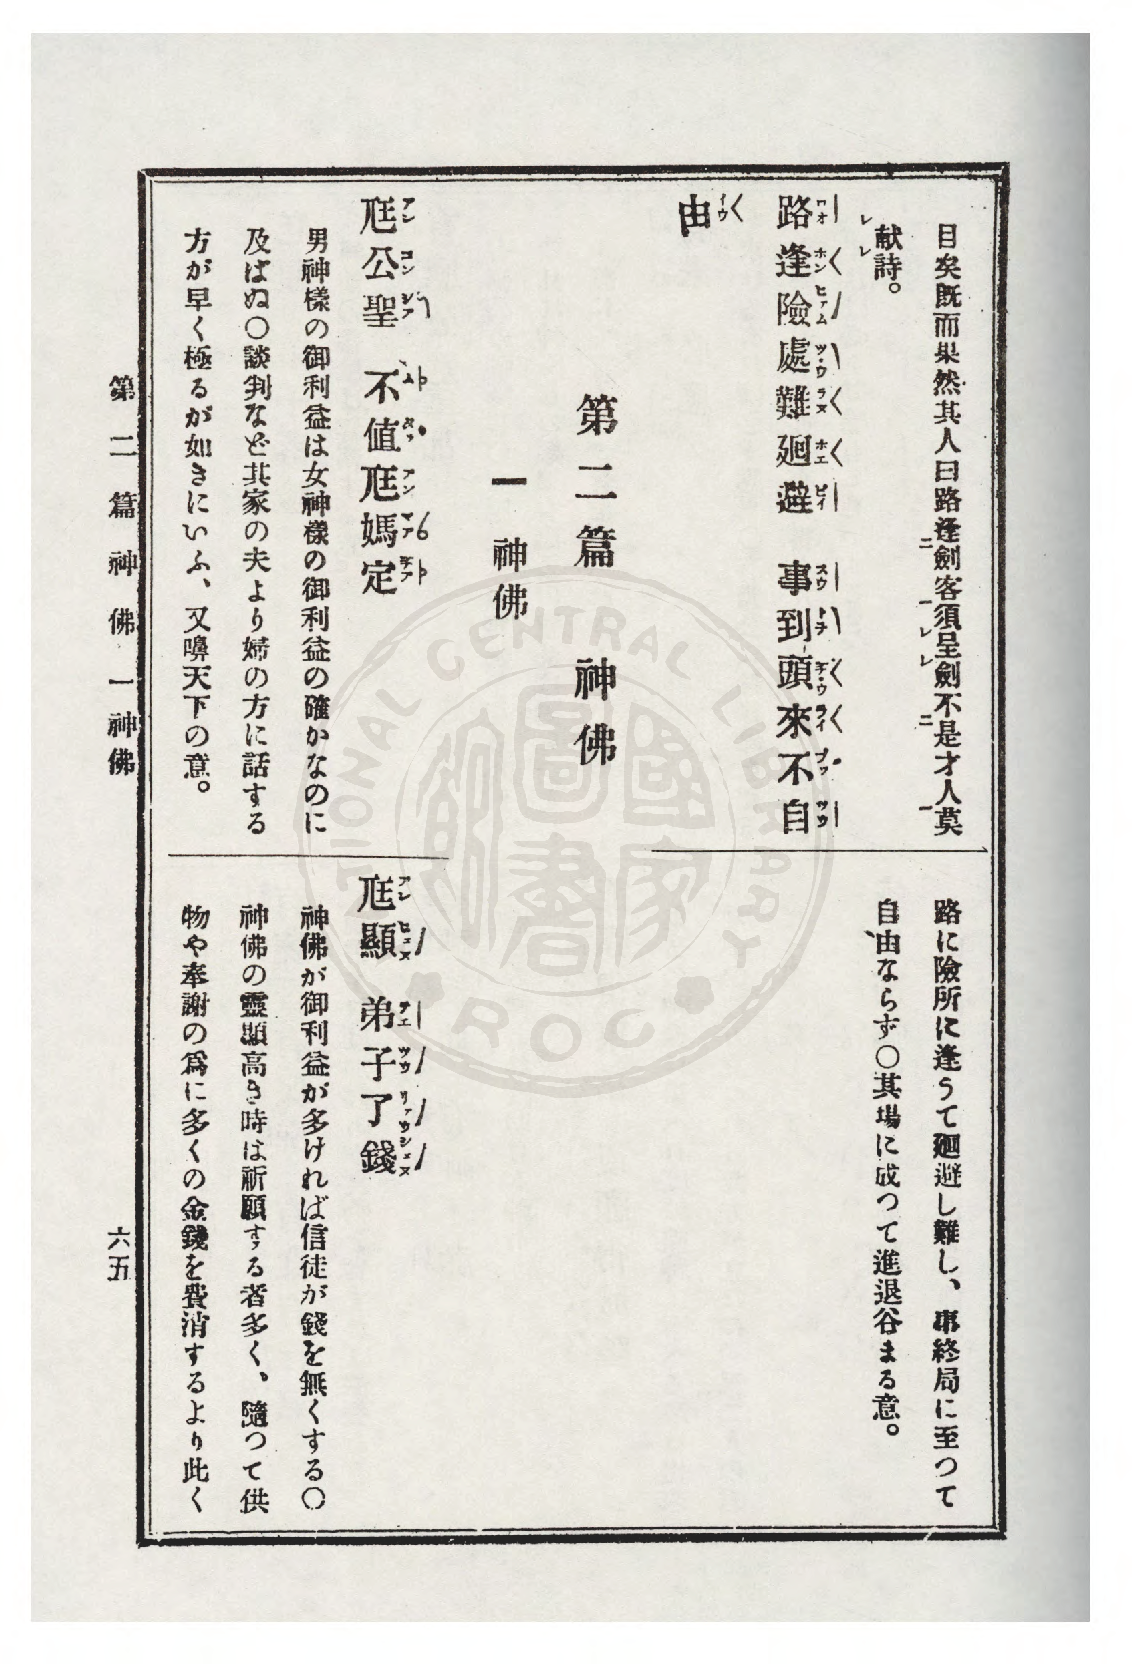 目矣既而果然其人曰路逢劍客須呈劍不是才人莫
献詩。
路逢險處難廻避 事到頭來不自
由
路に險所に逢うて廻避し難し、事終局に至つて
自由ならず〇其場に成つて進退谷まる意。
第二篇 神佛
一 神佛
尪公聖 不値尪媽定
男神樣の御利益は女神樣の御利益の確かなのに
及ばぬ〇談判など其家の夫より婦の方に話する
方が早く極るが如きにいふ、又嚊天下の意。
尪顯 弟子了錢
神佛が御利益が多ければ信徒が錢を無くする〇
神佛の靈顯高き時は祈願する者多く、隨つて供
物や奉謝の爲に多くの金錢を費消するより此く
第二篇 神佛 一 神佛
六五
NATIONAL CENTRAL LIBRARY
R.O.C
國家圖書館